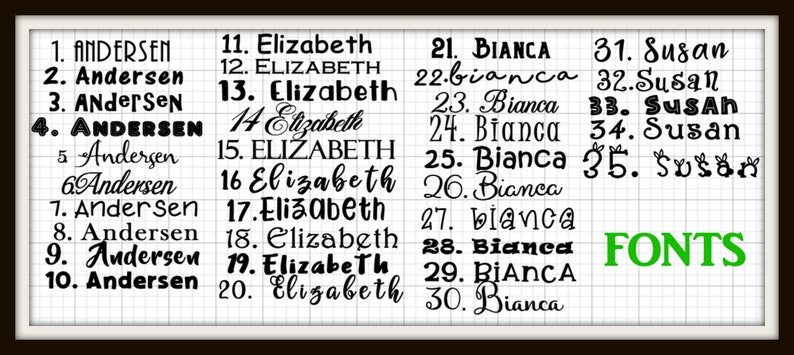 1. ANDERSEN
2. Andersen
3. ANdersEN
4. ANDERSEN
5 Andersen
6.Andersen
7. Andersen
8. Andersen
9. Andersen
10. Andersen
11. Elizabeth
12. ELIZABETH
13. Elizabeth
14 Elizabeth
15. ELIZABETH
16 Elizabeth
17. Elizabeth
18. Elizabeth
19. ElizabeTh
20. Elizabeth
21. BIANCA
22.bianca
23. Bianca
24. Bianca
25. Bianca
26. Bianca
27. bianca
28. Bianca
29. BiANCA
30. Bianca
31. Susan
32.Susan
33. SusAh
34. Susan
35. Susan
FONTS